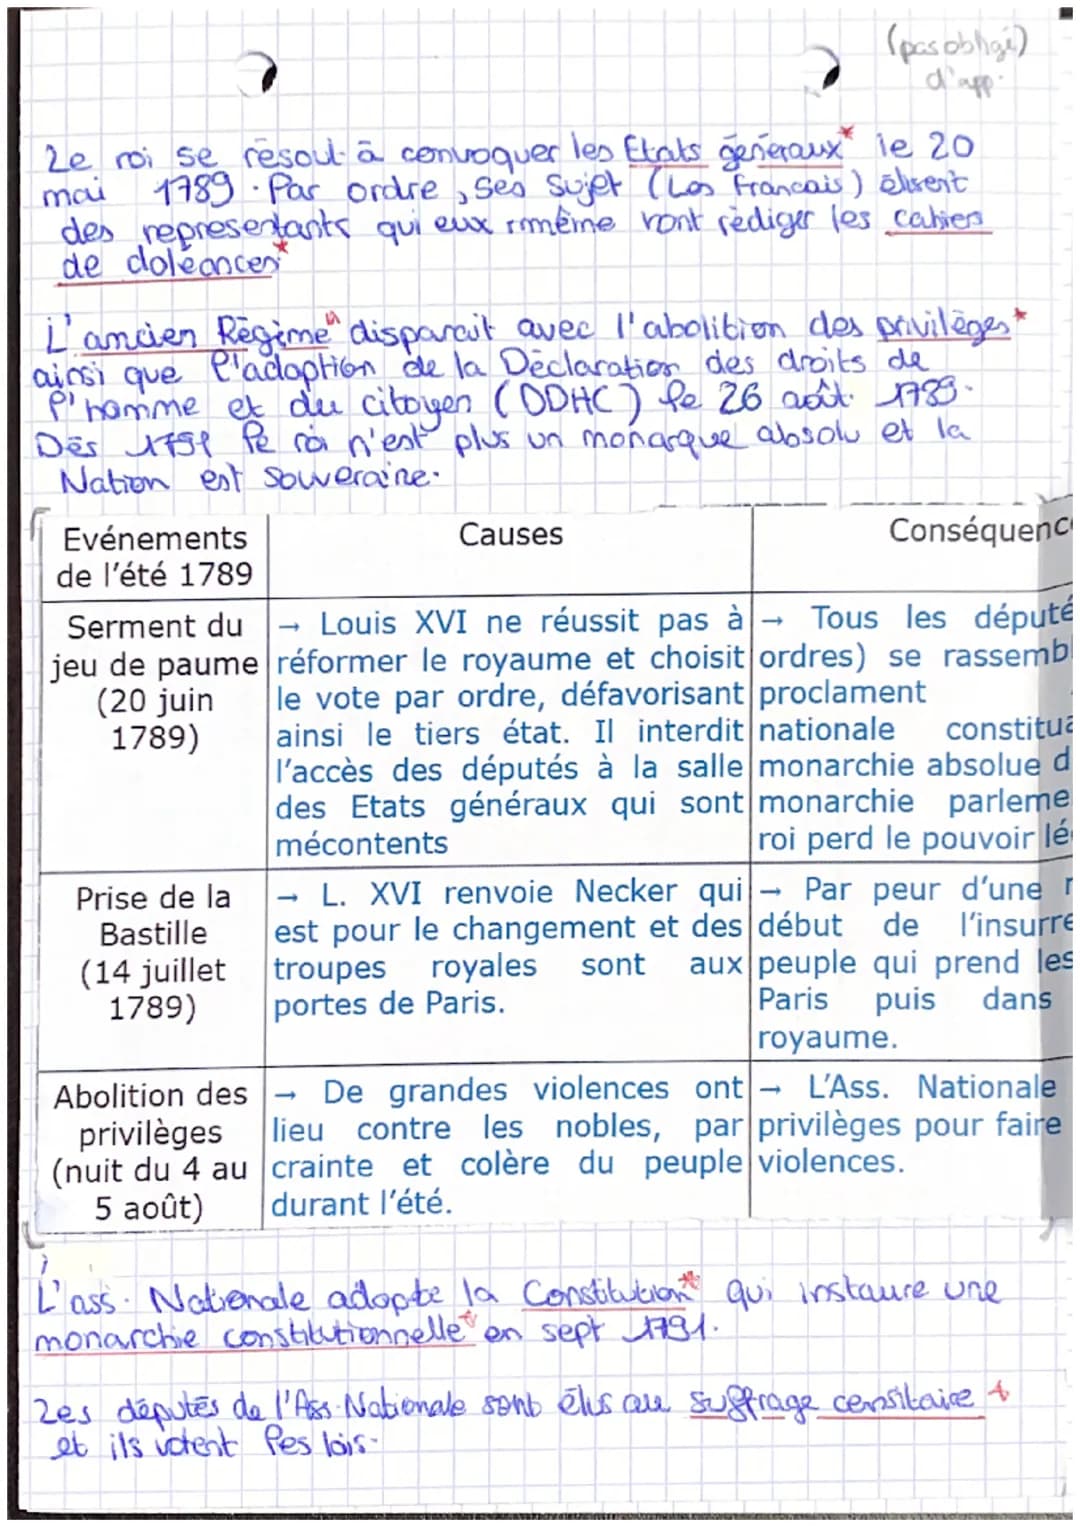 (pas obligé)
d'app.
Le roi se résout à convoquer les Etats généraux* le 20
mai 1789. Par ordre, ses sujet (Les Francais) élisent
des representants qui eux même vont rédiger les cahiers
de doléances*
L'ancien Régime* disparait avec l'abolition des privilèges*
ainsi que l'adoption de la Déclaration des droits de
l'homme et du citoyen (DDHC) le 26 août 1789.
Dès 1791 le roi n'est plus un monarque absolu et la
Nation est souveraine.
Evénements
de l'été 1789
Causes
Conséquenc
Serment du
jeu de paume
(20 juin
1789)
→ Louis XVI ne réussit pas à
réformer le royaume et choisit
le vote par ordre, défavorisant
ainsi le tiers état. Il interdit
l'accès des députés à la salle
des Etats généraux qui sont
mécontents
→ Tous les député
ordres) se rassembl
proclament
nationale constitua
monarchie absolue d
monarchie parleme
roi perd le pouvoir lé
Prise de la
Bastille
(14 juillet
1789)
→ L. XVI renvoie Necker qui
est pour le changement et des
troupes royales sont aux
portes de Paris.
→ Par peur d'une r
début de l'insurre
peuple qui prend les
Paris puis dans
royaume.
Abolition des
privilèges
(nuit du 4 au
5 août)
→ De grandes violences ont
lieu contre les nobles, par
crainte et colère du peuple
durant l'été.
→ L'Ass. Nationale
privilèges pour faire
violences.
L'ass. Nationale adopte la Constitution* qui instaure une
monarchie constitutionnelle* en sept 1791.
Les députés de l'Ass. Nationale sont élus au suffrage censitaire*
et ils votent les lois.